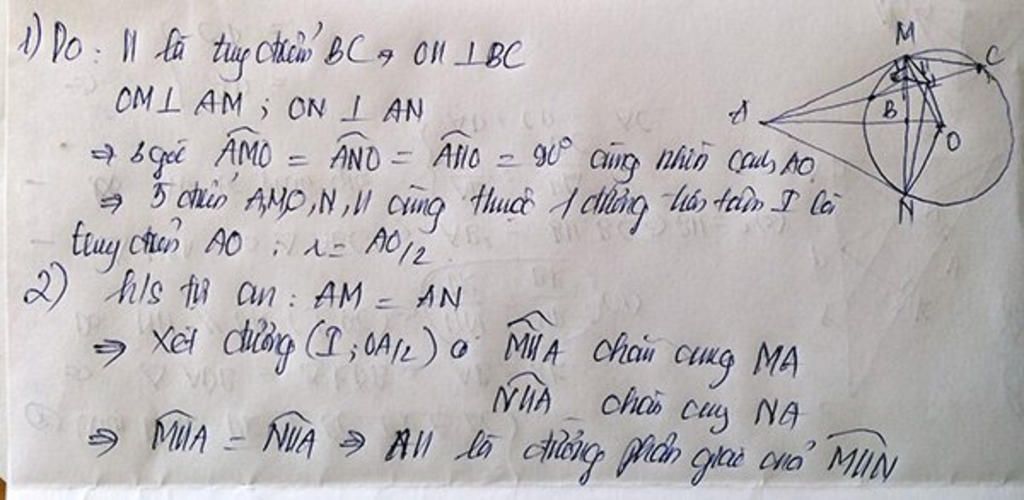 1) Do : H là trung điểm BC → OH ⊥ BC
OM ⊥ AM ; ON ⊥ AN
⇒ 3 góc AMO = ANO = AHO = 90° cùng nhìn cạnh AO
⇒ 5 điểm A,M,O,N,H cùng thuộc 1 đường tròn tâm I là
trung điểm AO ; r = AO/2
2) h/s tự cm : AM = AN
⇒ Xét đường (I ; OA/2) có MHA chắn cung MA
NHA chắn cung NA
⇒ MHA = NHA ⇒ AH là đường phân giác của MHN
M
C
H
A
B
O
N